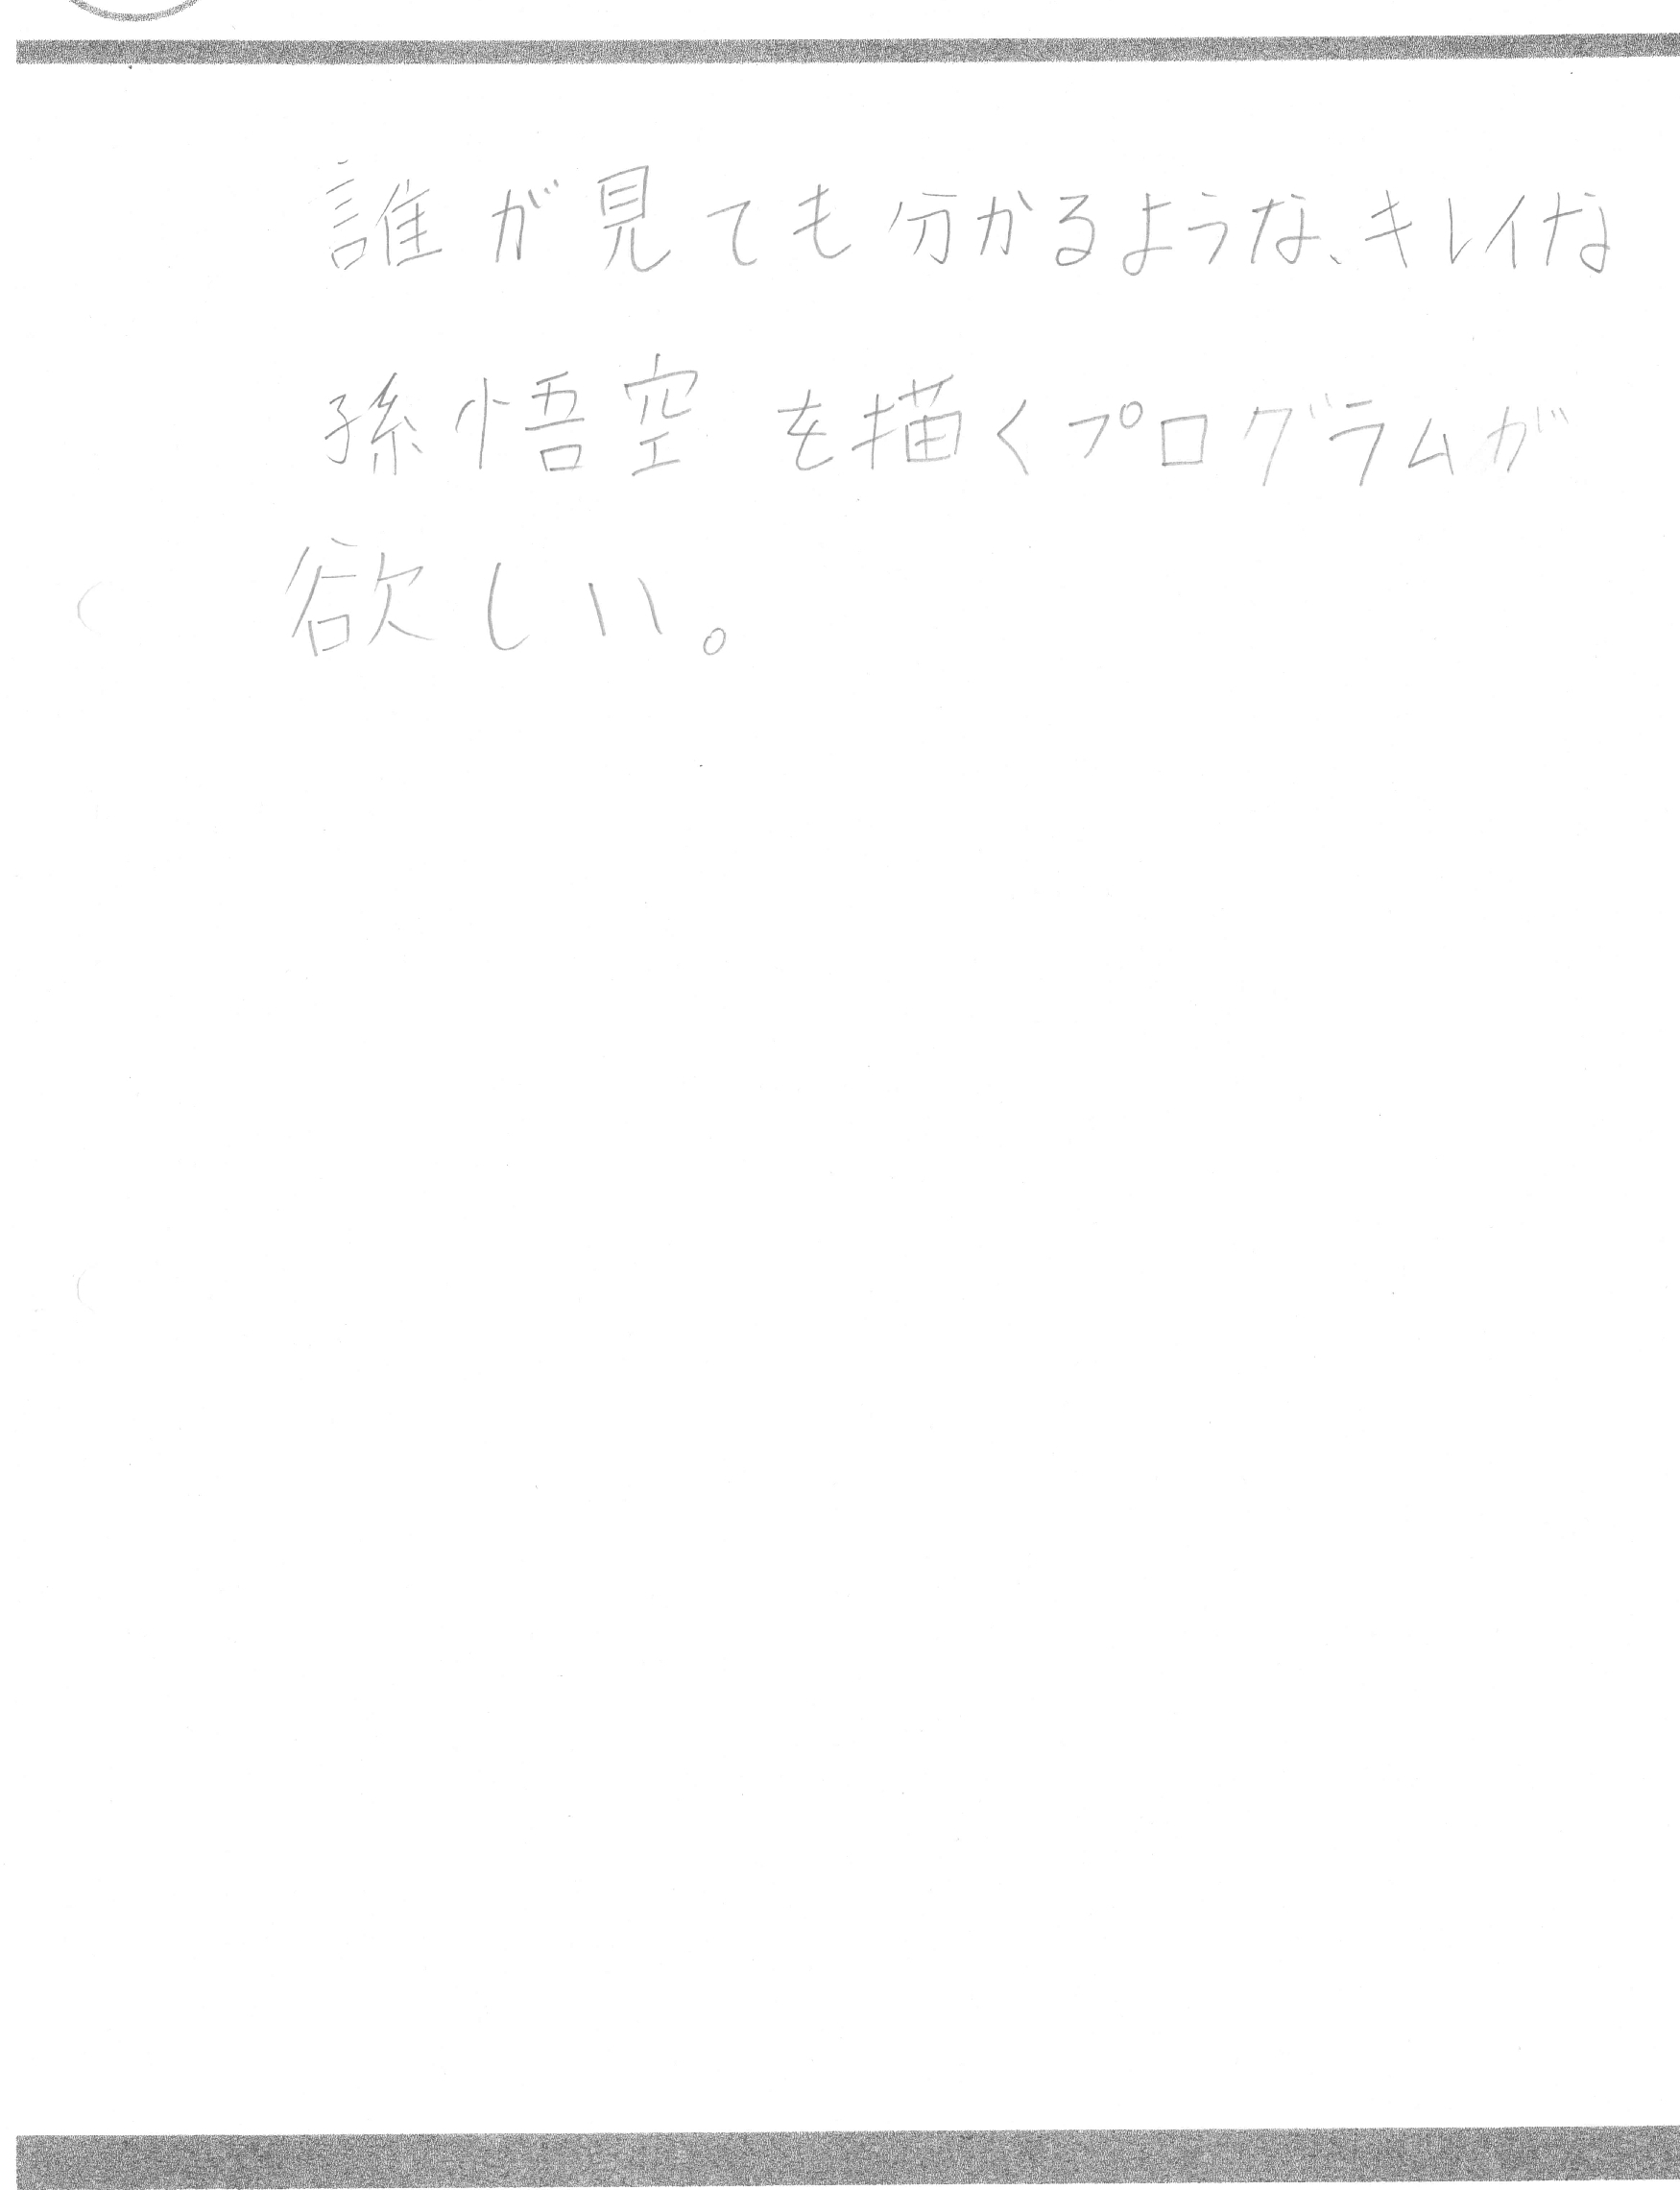 誰が見ても分かるような、キレイな
孫悟空を描くプログラムが
欲しい。